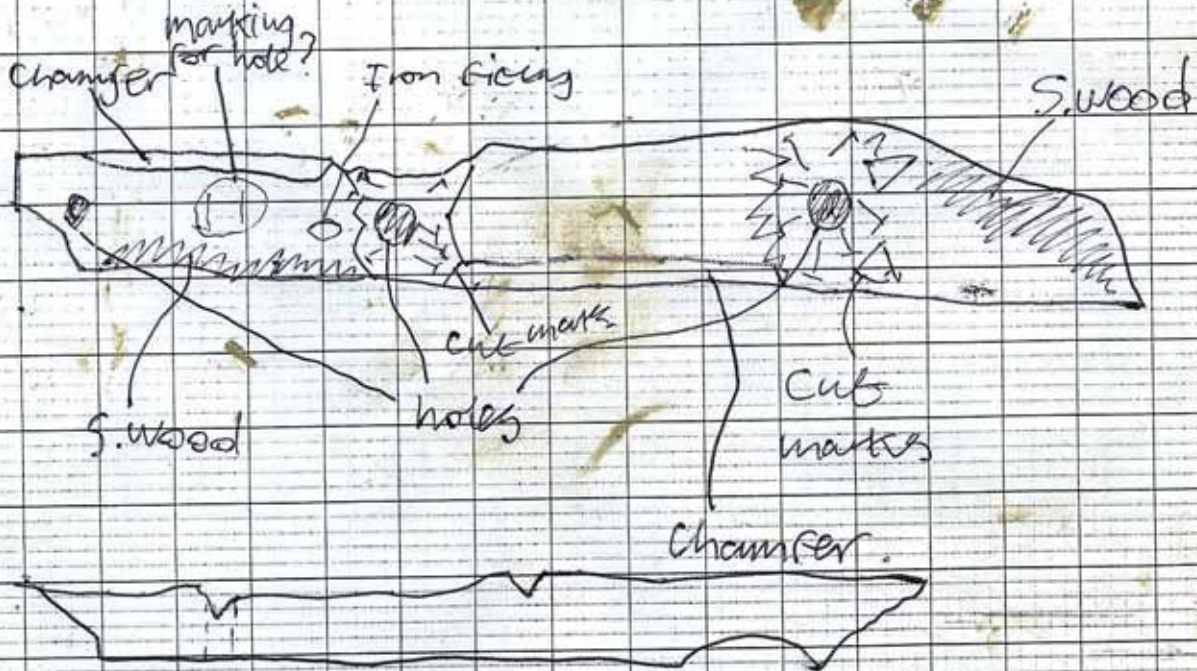 Chamfer
marking
for hole?
Iron fixing
S.wood
cut marks
holes
S.wood
Cut
marks
Chamfer.